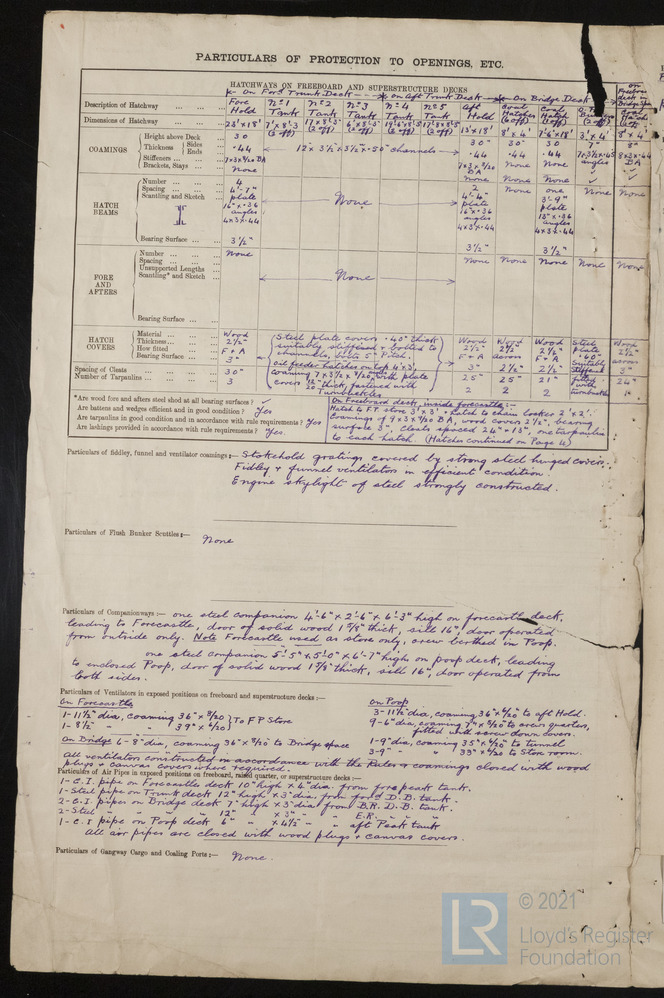 PARTICULARS OF PROTECTION TO OPENINGS, ETC.
HATCHWAYS ON FREEBOARD AND SUPERSTRUCTURE DECKS
On Ford Trunk Deck On Aft Trunk Deck On Bridge Deck
Description of Hatchway Fore Hold No 1 Tank No 2 Tank No 3 Tank No 4 Tank No 5 Tank Aft Hold Coal Hatches (6 off) Coal Hatch
Dimensions of Hatchway 23' x 18' 13' x 18' 8' x 4' 3' x 4' 8' x 4'
COAMINGS
Height above Deck 30 30" 30" 30 7" 8"
Thickness Sides Ends .44 12 x 3½ x 3½ x .50" channels .44 .44 .44
Stiffeners 7 x 3 x 8/20 BA None None
Brackets, Stays None None None None
HATCH BEAMS
Number 4 None 2 None one None None
Spacing 4'-7" 4'-4" 3'-9"
Scantling and Sketch plate 16" x .36 angles 4 x 3 x .44 plate 16" x .36 angles 4 x 3 x .44 plate 13" x .36 angles 4 x 3 x .44
Bearing Surface 3½" 3½" 3½"
FORE AND AFTERS
Number None None None None None None None
Spacing
Unsupported Lengths
Scantling* and Sketch
Bearing Surface
HATCH COVERS
Material Wood Steel plate covers .40" thick Wood Wood Wood Steel plate Wood
Thickness 2½" suitably stiffened & bolted to 2½" 2½" 2½" .40" 2½"
How fitted F + A channels, bolts 5" Pitch. F + A across F + A suitably stiffened across
Bearing Surface 3" oil feeder hatches on top 4' x 3', 3" 2½" 2½" 3"
Spacing of Cleats 30" coaming 7 x 3½ x 9/20, with plate 25" 25" 21" 24"
Number of Tarpaulins 3 covers 12/20" thick, fastened with turnbuckles 2 2 2
*Are wood fore and afters steel shod at all bearing surfaces? ✓
Are battens and wedges efficient and in good condition? Yes
Are tarpaulins in good condition and in accordance with rule requirements? Yes
Are lashings provided in accordance with rule requirements? Yes
On Freeboard deck, inside forecastle:-
Hatch to F.P. store 3' x 3' & hatch to chain locker 2' x 2'.
Coamings of 9 x 3 x 9/20 BA, wood covers 2½", bearing
surface 3", cleats spaced 24" & 13", one tarpaulin
to each hatch. (Hatches continued on Page 4)
Particulars of fiddley, funnel and ventilator coamings:— Stokehold gratings covered by strong steel hinged covers.
Fidley & funnel ventilators in efficient condition
Engine skylight of steel strongly constructed.
Particulars of Flush Bunker Scuttles:— None
Particulars of Companionways:— one steel companion 4'-6" x 2'-6" x 6'-3" high on forecastle deck,
leading to Forecastle, door of solid wood 1¾" thick, sill 16", door operated
from outside only. Note Forecastle used as store only, crew berthed in Poop.
one steel companion 5'-5" x 5'-0" x 6'-7" high on poop deck, leading
to enclosed Poop, door of solid wood 1⅞" thick, sill 16", door operated from
both sides.
Particulars of Ventilators in exposed positions on freeboard and superstructure decks:—
On Forecastle
1-11½" dia, coaming 36" x 8/20 } To F P Store
1-8½" " 39" x 6/20
On Bridge 6-8" dia, coaming 36" x 8/20 to Bridge space
On Poop
3-11½" dia, coaming 36" x 6/20 to aft Hold.
9-6" dia, coaming 7" x 8/20 to crews quarters,
fitted with screw down covers.
1-9" dia, coaming 35" x 6/20 to tunnel
3-9" " 33" x 6/20 to Stor. room.
All ventilators constructed in accordance with the Rules & coamings closed with wood
plugs & canvas covers where required.
Particulars of Air Pipes in exposed positions on freeboard, raised quarter, or superstructure decks:—
1-C.I. pipe on Forecastle deck 10" high x 4" dia. from fore peak tank.
1-Steel pipe on Trunk deck 12" high x 3" dia. from ford D.B. tank.
2-C.I. pipes on Bridge deck 7" high x 3" dia from B.R. D.B. tank.
2-Steel " " " 12" " x 3" " " E.R. " "
1-C.I. pipe on Poop deck 6" " x 4½" " " aft Peak tank
All air pipes are closed with wood plugs & canvas covers.
Particulars of Gangway Cargo and Coaling Ports:— None.
LR
© 2021
Lloyd's Register
Foundation